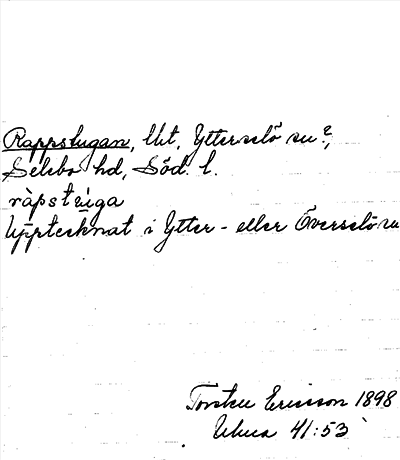 Rappstugan, lht, Ytterselö sn?,
Selebo hd, Söd. l.
ràpstɐ́iga
Upptecknat i Ytter- eller Överselö sn
Torsten Ericson 1898
Ulma 41:53